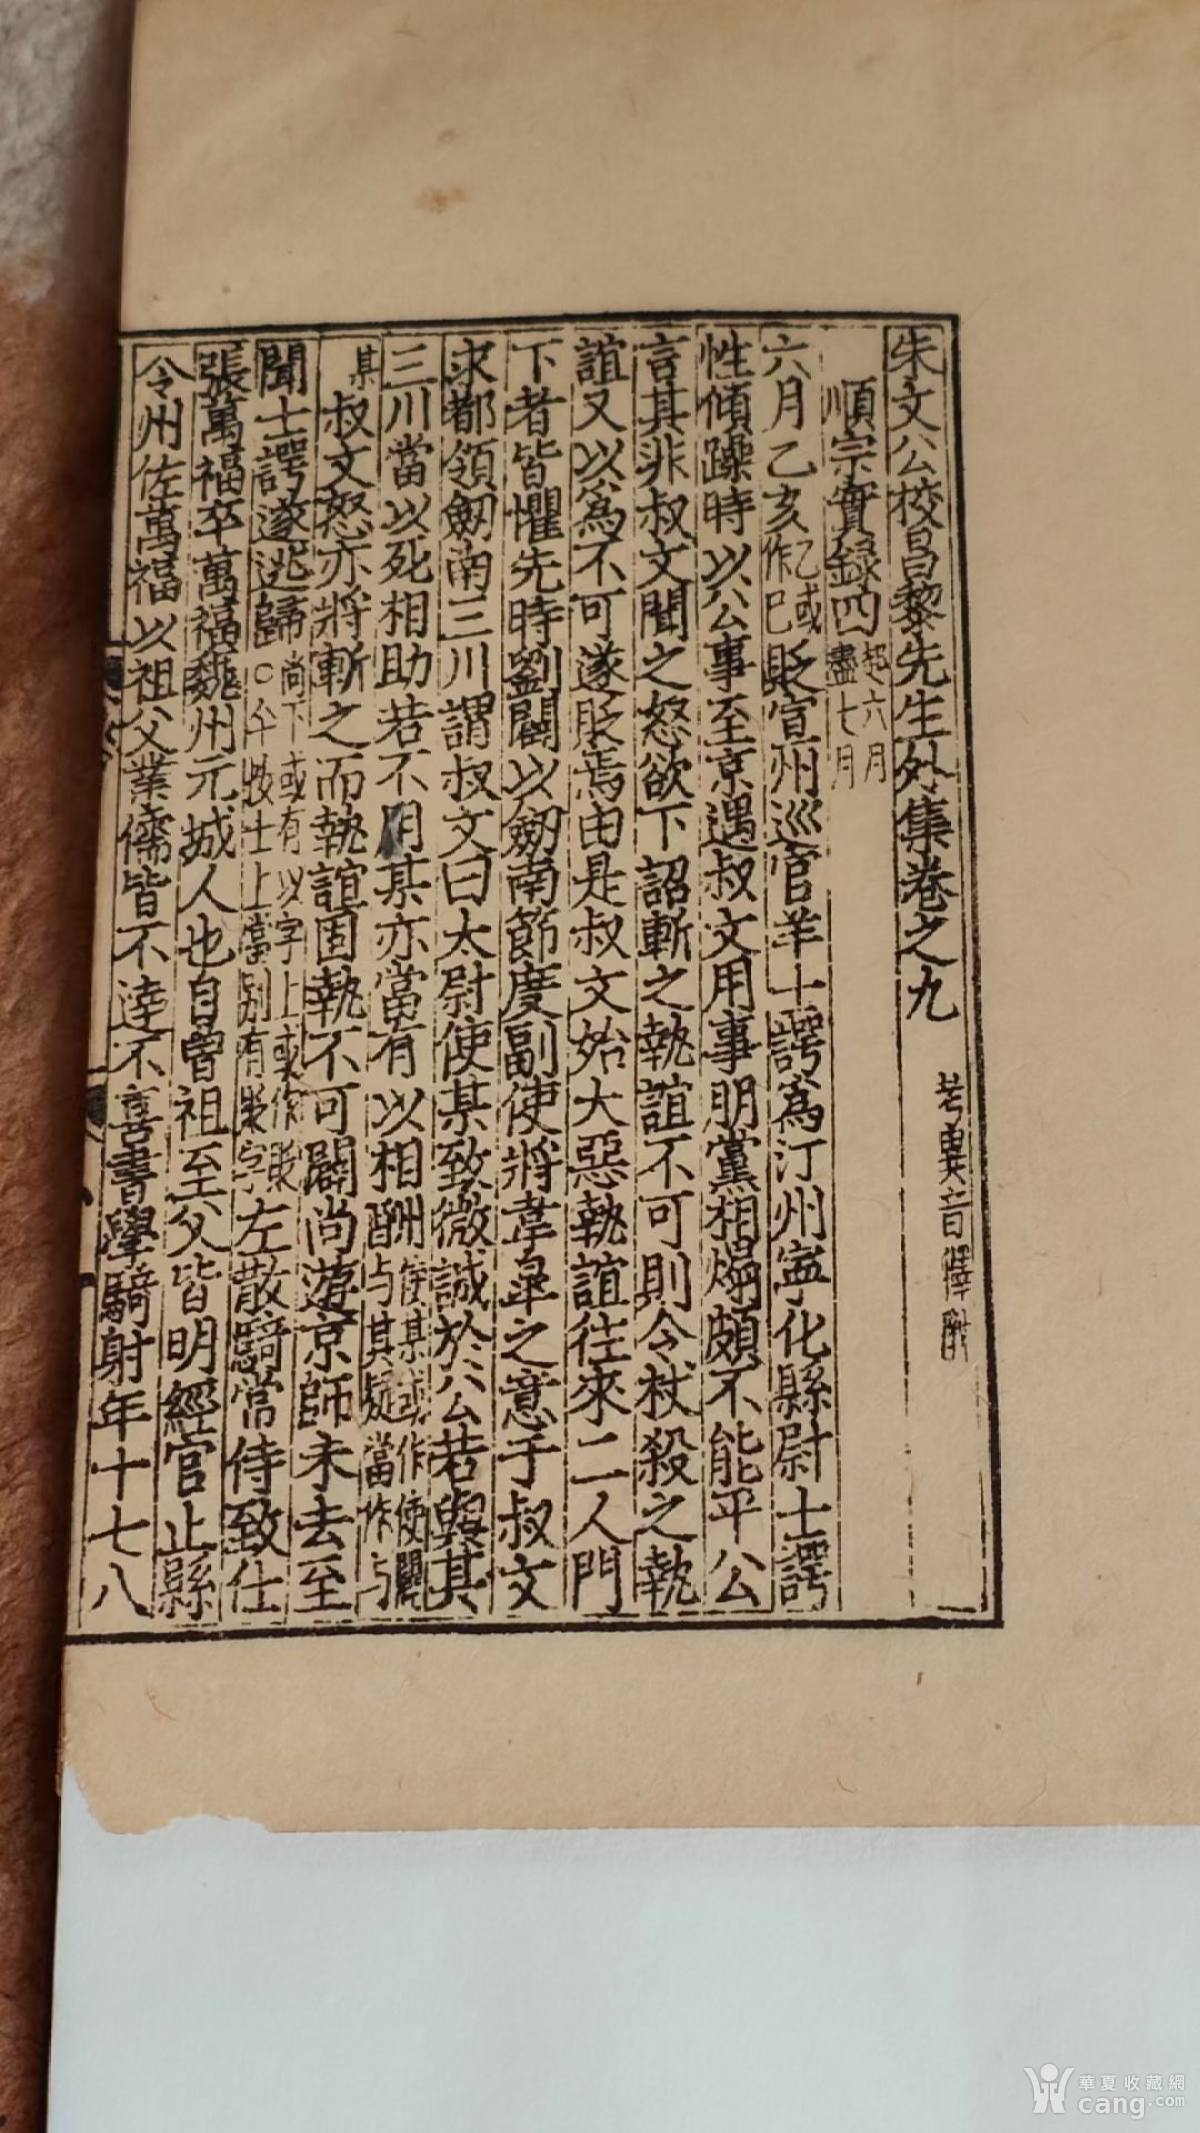 朱文公校昌黎先生外集卷之九 考異音釋附
順宗實錄四 起六月盡七月
六月乙亥 乙或作巳 貶宣州巡官羊士諤爲汀州寧化縣尉士諤
性傾躁時以公事至京遇叔文用事朋黨相煽頗不能平公
言其非叔文聞之怒欲下詔斬之執誼不可則令杖殺之執
誼又以爲不可遂貶焉由是叔文始大惡執誼往來二人門
下者皆懼先時劉闢以劒南節度副使將韋皐之意于叔文
求都領劒南三川謂叔文曰太尉使某致微誠於公若與其
三川當以死相助若不用某亦當有以相酬 使某或作使闢与其疑當作与
某 叔文怒亦將斬之而執誼固執不可闢尚遊京師未去至
聞士諤遂逃歸 尚下或有以字上或作貶○今按士上當別有羊字 左散騎常侍致仕
張萬福卒萬福魏州元城人也自曾祖至父皆明經官止縣
令州佐萬福以祖父業儒皆不達不喜書學騎射年十七八
華夏收藏網
cang.com